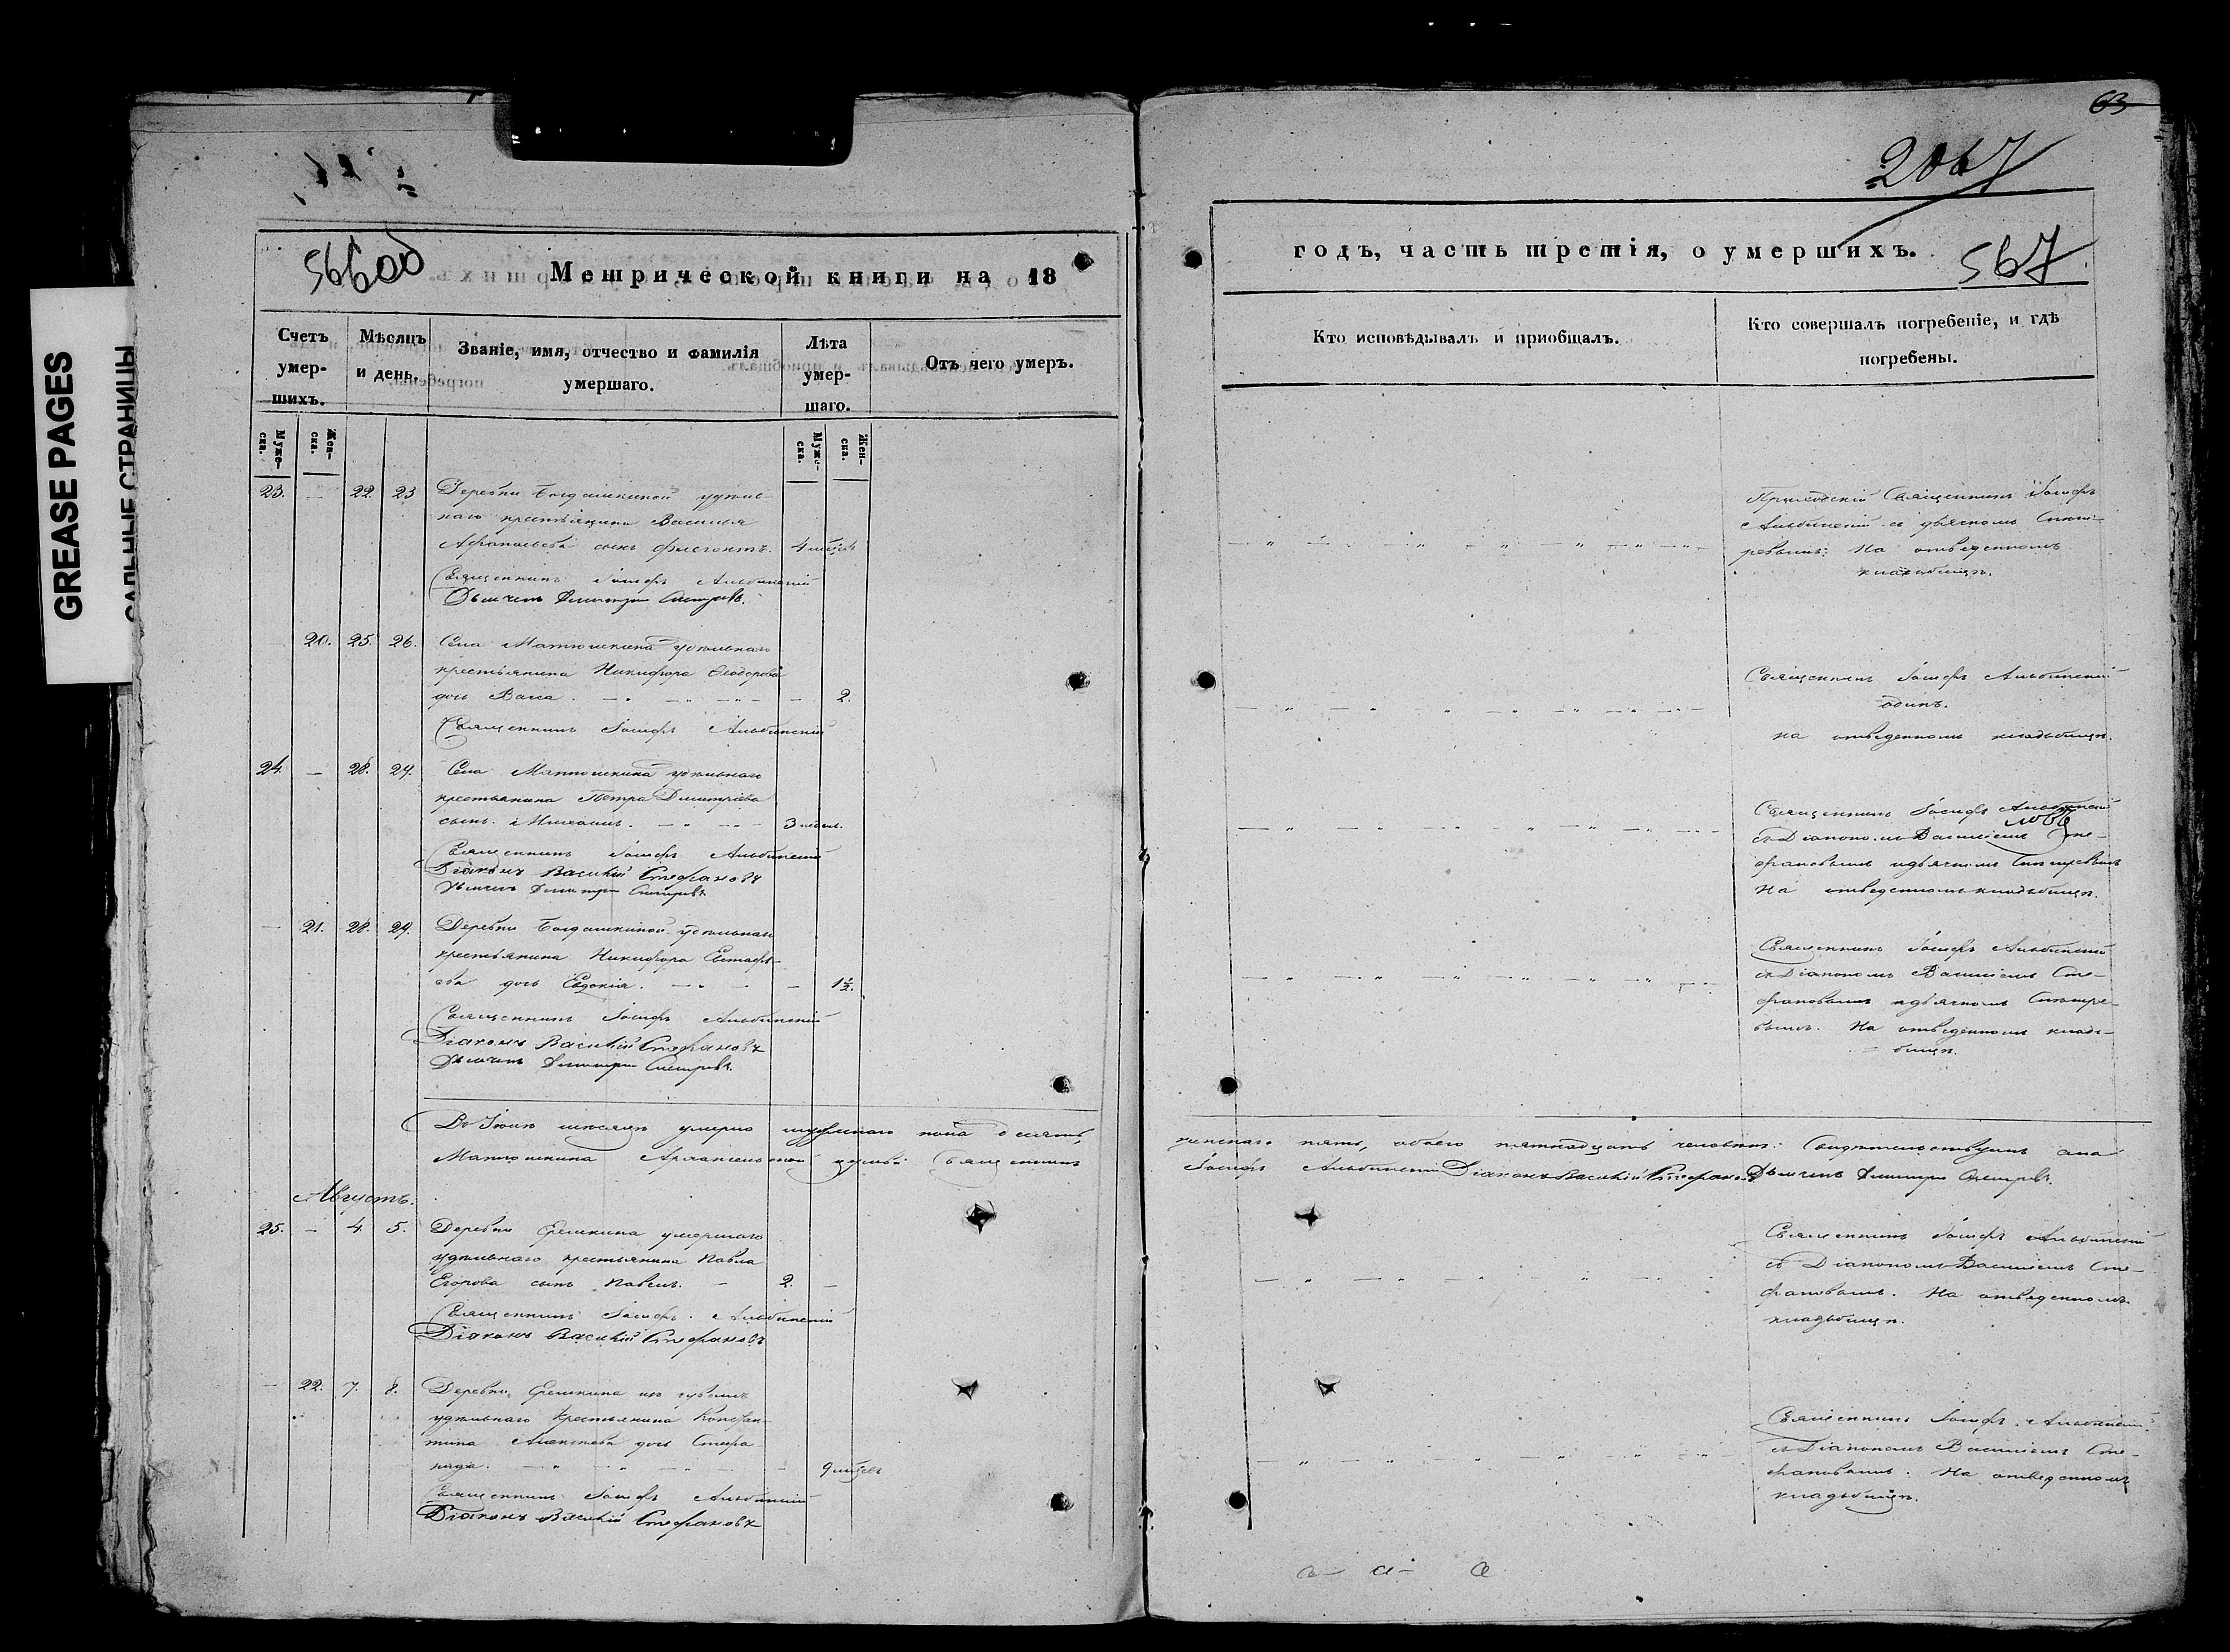 GREASE PAGES
САЛЬНЫЕ СТРАНИЦЫ
566 об
Метрической книги на 18
Счетъ умер-шихъ.
Мѣсяцъ и день.
Званіе, имя, отчество и фамилія умершаго.
Лѣта умер-шаго.
Отъ чего умеръ.
Муже-ска.
Жен-ска.
Муже-ска.
Жен-ска.
23. — 22. 23 Деревни Богдашкиной удѣль-
наго крестьянина Василья
сынъ Флегонтъ. 4 мѣсяц.
Священникъ Іосифъ Альбинскій
Дьячекъ Димитрій
20. 25. 26. Села Матюшкина удѣльнаго
крестьянина Никифора Ѳеодорова
дочь Васса. — 2.
Священникъ Іосифъ Альбинскій
24. — 28. 29. Села Матюшкина удѣльнаго
крестьянина Петра Димитріева
сынъ Михаилъ. 3 недѣль.
Священникъ Іосифъ Альбинскій
Діаконъ Василій Стефановъ
Дьячекъ Димитрій
— 21. 28. 29. Деревни Богдашкиной удѣльнаго
крестьянина Никифора Евстафь-
ева дочь Евдокія. — 1½.
Священникъ Іосифъ Альбинскій
Діаконъ Василій Стефановъ
Дьячекъ Димитрій
Въ мѣсяцѣ умерло мужескаго пола десять,
Матюшкина Архангельской церкви Священникъ
Августъ.
25. — 4 5. Деревни Еремкина умершаго
удѣльнаго крестьянина Павла
Егорова сынъ Павелъ. — 2. —
Священникъ Іосифъ Альбинскій
Діаконъ Василій Стефановъ
— 22. 7. 8. Деревни Еремкина
удѣльнаго крестьянина Констан-
тина Алексѣева дочь Стефа-
нида. — 9 мѣсяц.
Священникъ Іосифъ Альбинскій
Діаконъ Василій Стефановъ
63
2067
годъ, часть третія, о умершихъ.
567
Кто исповѣдывалъ и пріобщалъ.
Кто совершалъ погребеніе, и гдѣ погребены.
Приходскій Священникъ Іосифъ
Альбинскій съ дьячкомъ
На отведенномъ
кладбищѣ.
Священникъ Іосифъ Альбинскій
одинъ.
на отведенномъ кладбищѣ.
Священникъ Іосифъ Альбинскій
съ Діакономъ Василіемъ Сте-
фановымъ и дьячкомъ
На отведенномъ кладбищѣ.
Священникъ Іосифъ Альбинскій
съ Діакономъ Василіемъ Сте-
фановымъ и дьячкомъ
На отведенномъ клад-
бищѣ.
женскаго пять, обоего пятнадцать человѣкъ. села
Іосифъ Альбинскій Діаконъ Василій Стефановъ Дьячекъ Димитрій
Священникъ Іосифъ Альбинскій
съ Діакономъ Василіемъ Сте-
фановымъ. На отведенномъ
кладбищѣ.
Священникъ Іосифъ Альбинскій
съ Діакономъ Василіемъ Сте-
фановымъ. На отведенномъ
кладбищѣ.